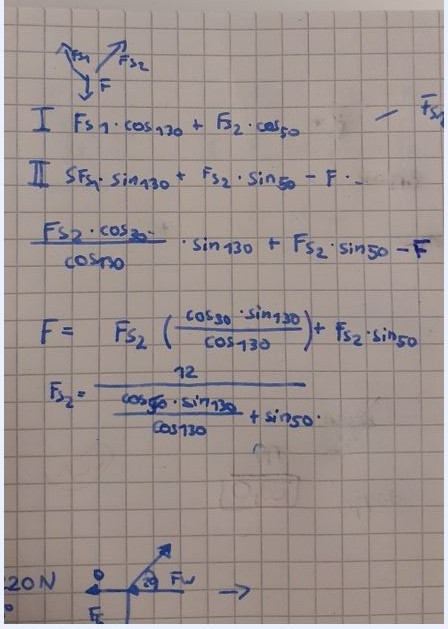 Fs1 Fs2
F
I Fs1 · cos130 + Fs2 · cos50
II SFs1 · sin130 + Fs2 · sin50 - F · -
Fs2 · cos30 / cos130 · sin130 + Fs2 · sin50 - F
F = Fs2 ( cos30 · sin130 / cos130 ) + Fs2 · sin50
Fs2 = 12 / ( cos50 · sin130 / cos130 + sin50 ·
20N Fw